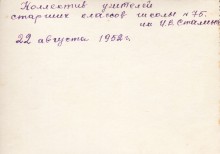 Коллектив учителей
старших классов школы №75.
им И.В. Сталина
22 августа 1952 г.